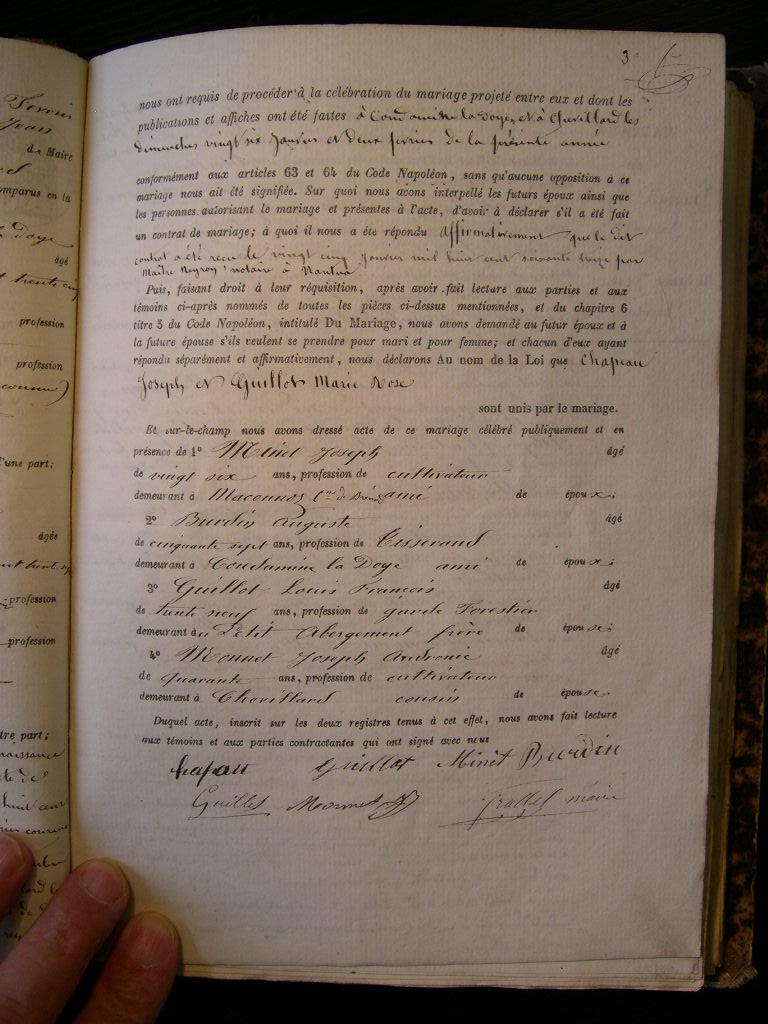 3
nous ont requis de procéder à la célébration du mariage projeté entre eux et dont les
publications et affiches ont été faites à Condamine la Doye et à Chevillard les
dimanches vingt six Janvier et deux fevrier de la présente année
conformément aux articles 63 et 64 du Code Napoléon, sans qu'aucune opposition à ce
mariage nous ait été signifiée. Sur quoi nous avons interpellé les futurs époux ainsi que
les personnes autorisant le mariage et présentes à l'acte, d'avoir à déclarer s'il a été fait
un contrat de mariage; à quoi il nous a été répondu Affirmativement que le dit
contrat a été recu le vingt cinq Janvier mil huit cent soixante treize par
Maître Neyron notaire à Nantua
Puis, faisant droit à leur réquisition, après avoir fait lecture aux parties et aux
témoins ci-après nommés de toutes les pièces ci-dessus mentionnées, et du chapitre 6
titre 5 du Code Napoléon, intitulé Du Mariage, nous avons demandé au futur époux et à
la future épouse s'ils veulent se prendre pour mari et pour femme; et chacun d'eux ayant
répondu séparément et affirmativement, nous déclarons Au nom de la Loi que Chapeau
Joseph et Guillot Marie Rose
sont unis par le mariage.
Et sur-le-champ nous avons dressé acte de ce mariage célébré publiquement et en
présence de 1° Minet Joseph âgé
de vingt six ans, profession de cultivateur
demeurant à Maconnod ami de époux;
2° Burdin Auguste âgé
de cinquante sept ans, profession de Tisserand
demeurant à Condamine la Doye ami de époux;
3° Guillot Louis François âgé
de trente neuf ans, profession de garde Forestier
demeurant au Petit Abergement frère de épouse;
4° Monnet Joseph Andronic âgé
de quarante ans, profession de cultivateur
demeurant à Chevillard cousin de épouse.
Duquel acte, inscrit sur les deux registres tenus à cet effet, nous avons fait lecture
aux témoins et aux parties contractantes qui ont signé avec nous
Guillot Minet Burdin
Guillot Monnet maire